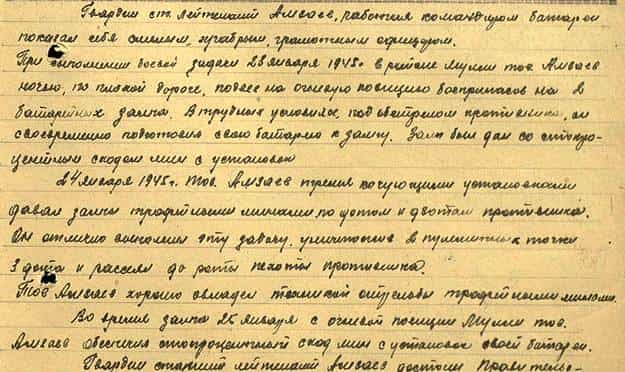 Гвардии ст. лейтенант Амзаев, работая командиром батареи
показал себя смелым, храбрым, грамотным офицером.
При выполнении боевой задачи 23 января 1945 г. в районе Мулли тов. Амзаев
ночью, по плохой дороге, подвез на огневую позицию боеприпасов на 2
батарейных залпа. В трудных условиях, под обстрелом противника, он
своевременно подготовил свою батарею к залпу. Залп был дан со стопро-
центным сходом мин с установок
24 января 1945 г. тов. Амзаев тремя кочующими установками
давал залпы трофейными минами, по дотам и дзотам противника.
Он отлично выполнил эту задачу, уничтожив 2 пулеметных точки
3 дота и рассеял до роты пехоты противника.
Тов. Амзаев хорошо овладел техникой стрельбы трофейными минами.
Во время залпа 25 января с огневой позиции Мулли тов.
Амзаев обеспечил стопроцентный сход мин с установок своей батареи.
Гвардии старший лейтенант Амзаев достоин Правительс-